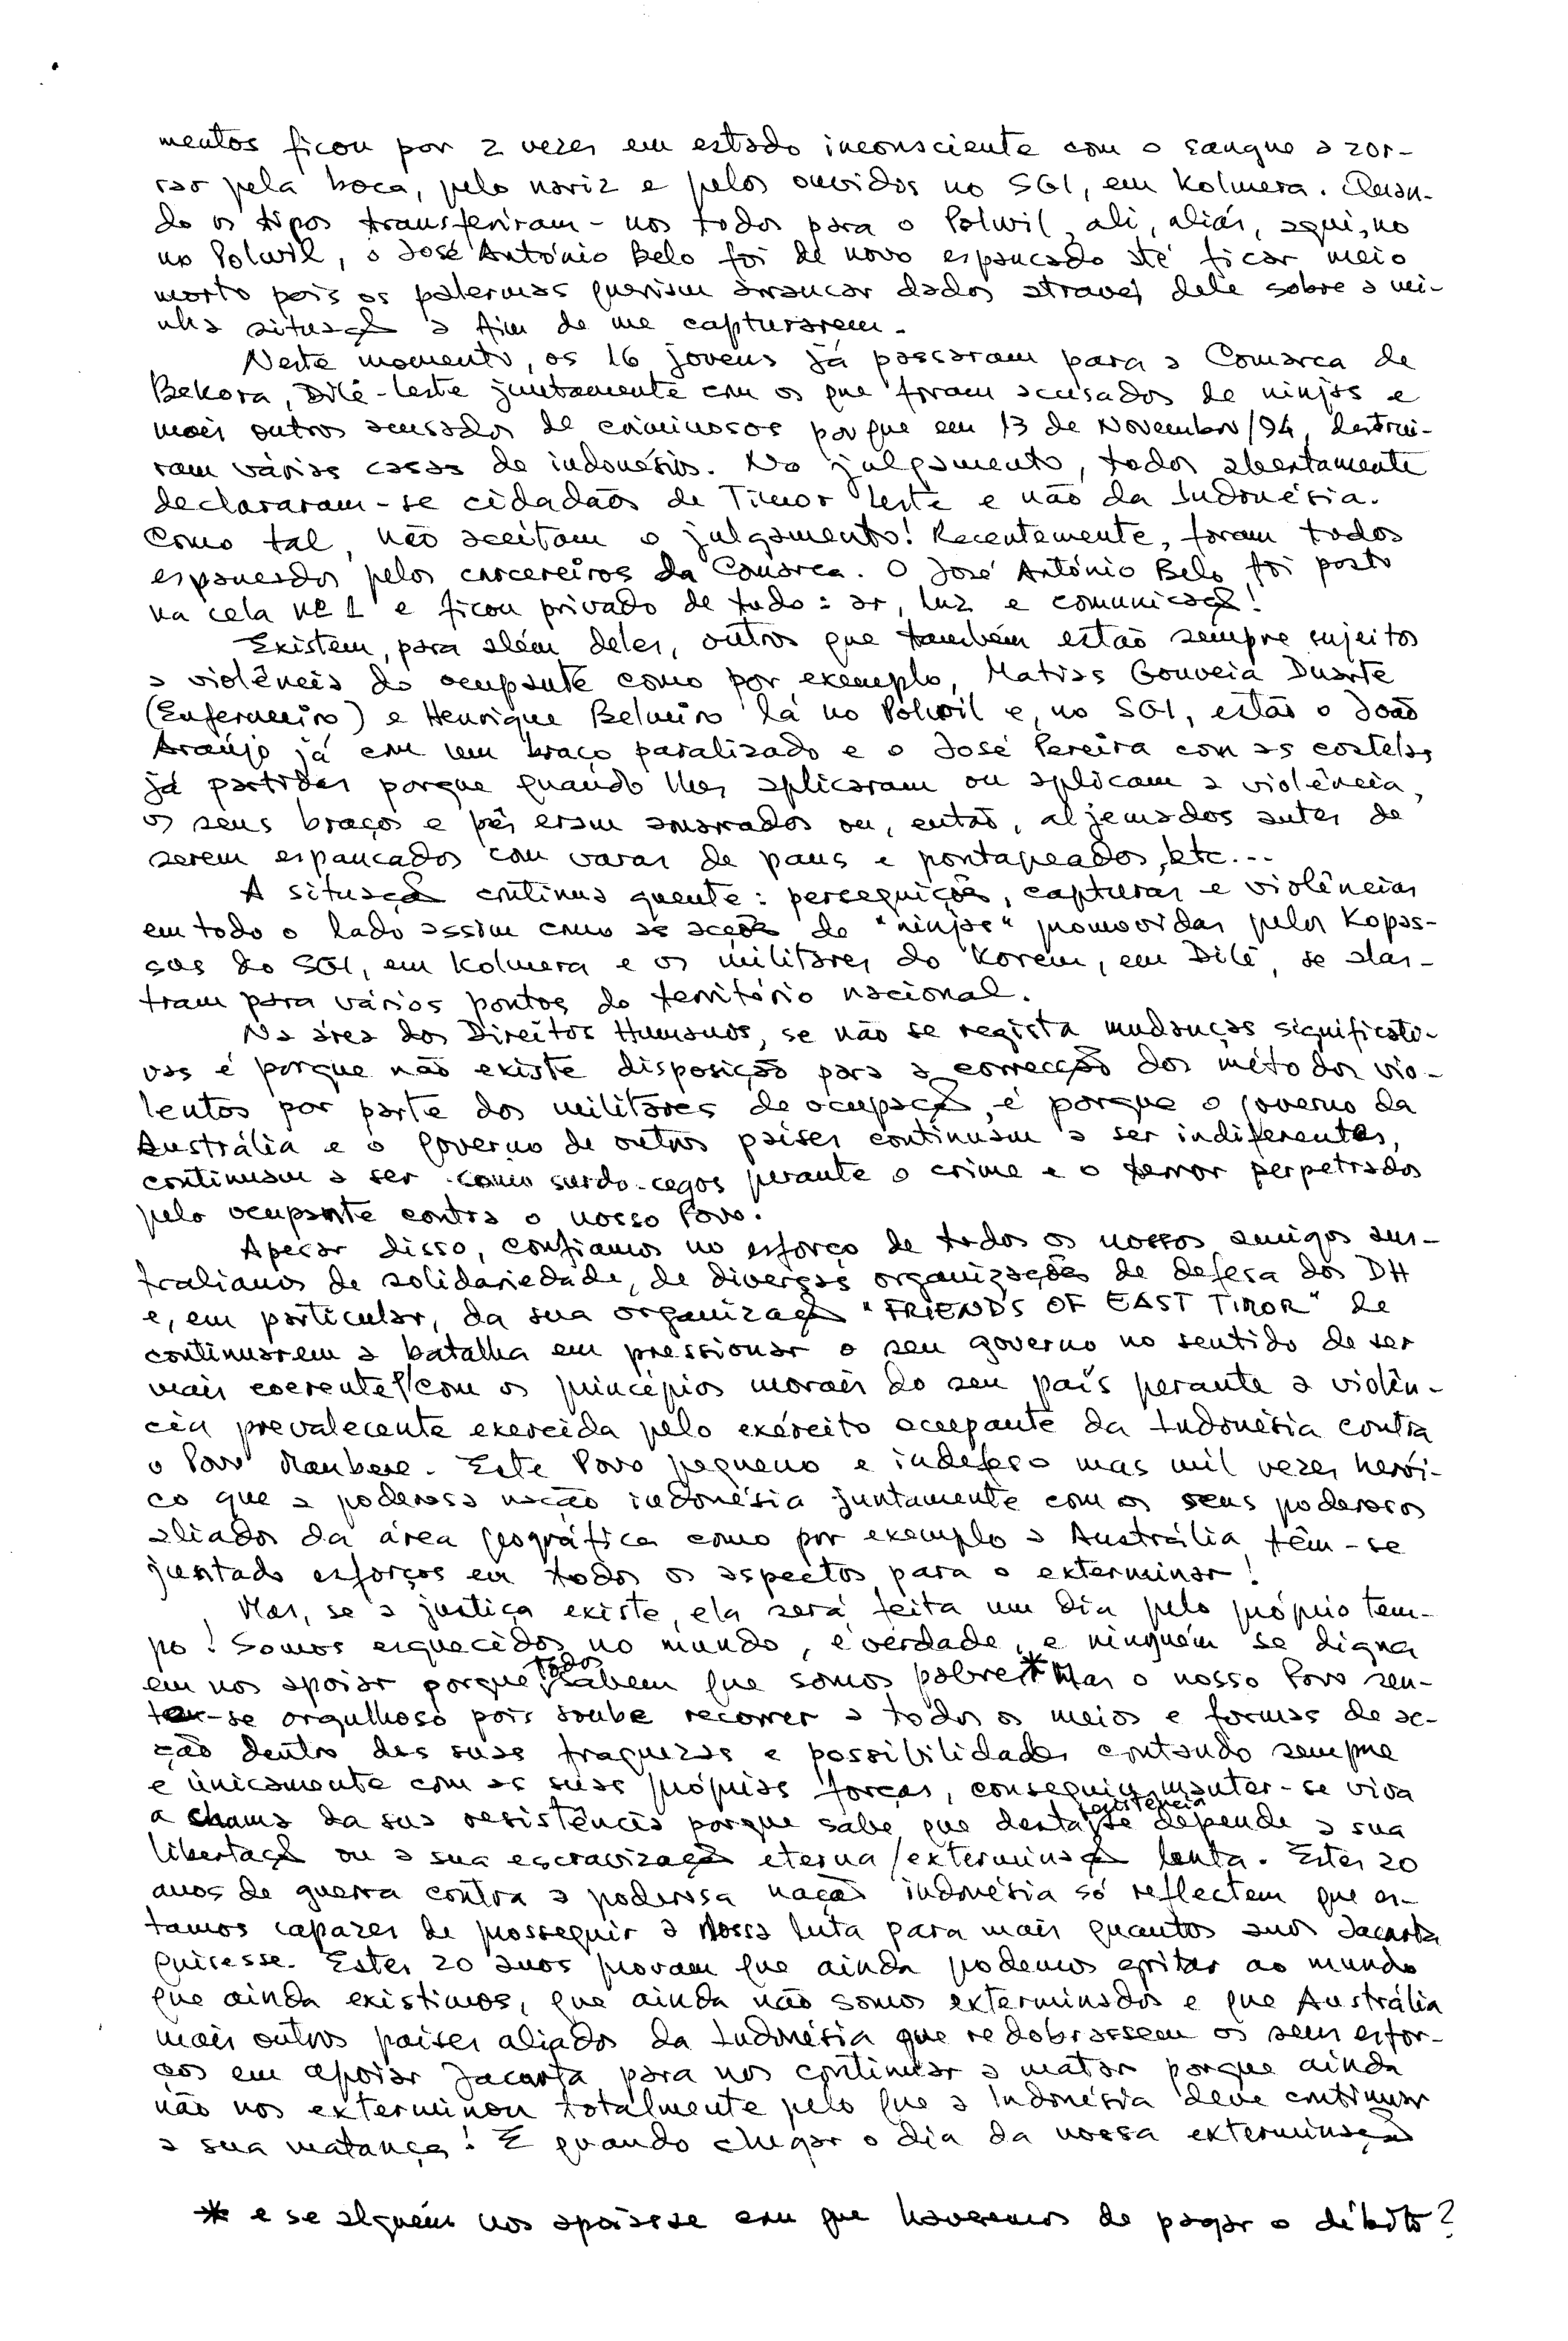 mentos ficou por 2 vezes em estado inconsciente com o sangue a zor-
rar pela boca, pelo nariz e pelos ouvidos no SGI, em Kolmera. Quan-
do os tipos transferiram-nos todos para o Polwil, ali, aliás, aqui, no
no Polwil, o José António Belo foi de novo espancado até ficar meio
morto pois os palermas queriam arrancar dados através dele sobre a mi-
nha situaçã a fim de me capturarem.
Neste momento, os 16 jovens já passaram para a Comarca de
Bekora, Dílí-leste juntamente com os que foram acusados de ninjas e
mais outros acusados de criminosos porque em 13 de Novembro/94, destrui-
ram várias casas de indonésios. No julgamento, todos abertamente
declararam-se cidadãos de Timor Leste e não da Indonésia.
Como tal, não aceitam o julgamento! Recentemente, foram todos
espancados pelos carcereiros da Comarca. O José António Belo foi posto
na cela nº 1 e ficou privado de tudo: ar, luz e comunicaçã!
Existem, para além deles, outros que também estão sempre sujeitos
a violência do ocupante como por exemplo, Matias Gouveia Duarte
(Enfermeiro) e Henrique Belmiro lá no Polwil e, no SGI, estão o João
Araújo já com um braço paralizado e o José Pereira com as costelas
já partidas porque quando lhes aplicaram ou aplicam a violência,
os seus braços e pés eram amarrados ou, então, aljemados antes de
serem espancados com varas de paus e pontapeados, etc...
A situaçã continua quente: perseguições, capturas e violências
em todo o lado assim como as acções de "ninjas" promovidas pelos Kopas-
sus do SGI, em Kolmera e os militares do Korem, em Dílí, se alas-
tram para vários pontos do território nacional.
Na área dos Direitos Humanos, se não se regista mudanças significati-
vas é porque não existe disposição para a correcção dos métodos vio-
lentos por parte dos militares de ocupaçã, é porque o governo da
Austrália e o governo de outros países continuam a ser indiferentes,
continuam a ser como surdo-cegos perante o crime e o terror perpetrados
pelo ocupante contra o nosso Povo.
Apesar disso, confiamos no esforço de todos os nossos amigos aus-
tralianos de solidariedade, de diversas organizações de defesa dos DH
e, em particular, da sua organizaçã "FRIENDS OF EAST TIMOR" de
continuarem a batalha em pressionar o seu governo no sentido de ser
mais coerente com os princípios morais do seu país perante a violên-
cia prevalecente exercida pelo exército ocupante da Indonésia contra
o Povo Maubere. Este Povo pequeno e indefeso mas mil vezes herói-
co que a poderosa nação indonésia juntamente com os seus poderosos
aliados da área geográfica como por exemplo a Austrália têm-se
juntado esforços em todos os aspectos para o exterminar!
Mas, se a justiça existe, ela será feita um dia pelo próprio tem-
po! Somos esquecidos no mundo, é verdade, e ninguém se digna
em nos apoiar porque todos sabem que somos pobres * Mas o nosso Povo sen-
te-se orgulhoso pois soube recorrer a todos os meios e formas de ac-
ção dentro das suas fraquezas e possibilidades contando sempre
e únicamente com as suas próprias forças, conseguiu manter-se viva
a chama da sua resistência porque sabe que desta resistência depende a sua
libertaçã ou a sua escravizaçã eterna/exterminaçã lenta. Estes 20
anos de guerra contra a poderosa nação indonésia só reflectem que es-
tamos capazes de prosseguir a Nossa luta para mais quantos anos Jacarta
quisesse. Estes 20 anos provam que ainda podemos gritar ao mundo
que ainda existimos, que ainda não somos exterminados e que Austrália
mais outros países aliados da Indonésia que redobrassem os seus esfor-
ços em apoiar Jacarta para nos continuar a matar porque ainda
não nos exterminou totalmente pelo que a Indonésia deve continuar
a sua matança! E quando chegar o dia da nossa exterminaçã
* e se alguém nos apoiasse com que haveremos de pagar o débito?